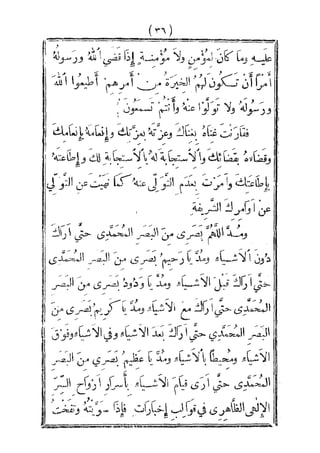 (٣٦)
عليه وما كان لمؤمن ولا مؤمنة إذا قضى الله ورسوله
أمرا أن تكون لهم الخيرة من أمرهم أطيعوا الله
ورسوله ولا تولوا عنه وأنتم تسمعون
فقارنت غناه بغناك وعزته بعزتك وإنعامه بإنعامك
وقضاءه بقضائك والاستجابة له بالاستجابة لك وإطاعته
بإطاعتك وأمرت بعدم التولى عنه كما نهيت عن التولى
عن أوامرك الشريفة
ومد اللهم بصرى من البصر المحمدى حتى أراك
دون الأشياء ومد يا رحيم بصرى من البصر المحمدى
حتى أراك قبل الأشياء ومد يا ودود بصرى من البصر
المحمدى حتى أراك مع الأشياء ومد يا كريم بصرى من
البصر المحمدى حتى أراك بعد الأشياء وفى الأشياء وفوق
الأشياء ومحيطا بالأشياء ومد يا عظيم بصرى من البصر
المحمدى حتى أرى قيام الأشياء بأسرار أرواح السر
الإلهى الظاهرى فى قوالب إخبارات فإذا سويته ونفخت